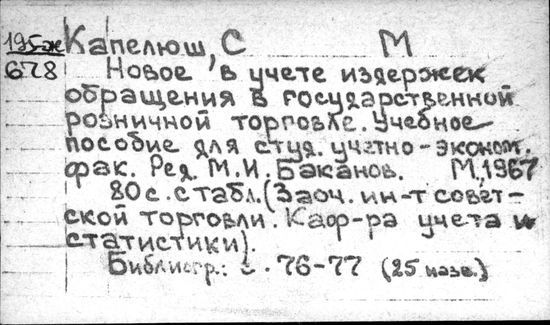 195ж Капелюш, С М
678 Новое в учете издержек
обращения в государственной
розничной торговле. Учебное
пособие для студ. учетно-эконом.
фак. Ред. М.И. Баканов. М, 1967
80 с. с табл. (Заоч. ин-т совет-
ской торговли. Каф-ра учета и
статистики).
Библиогр.: с. 76-77 (25 назв.)